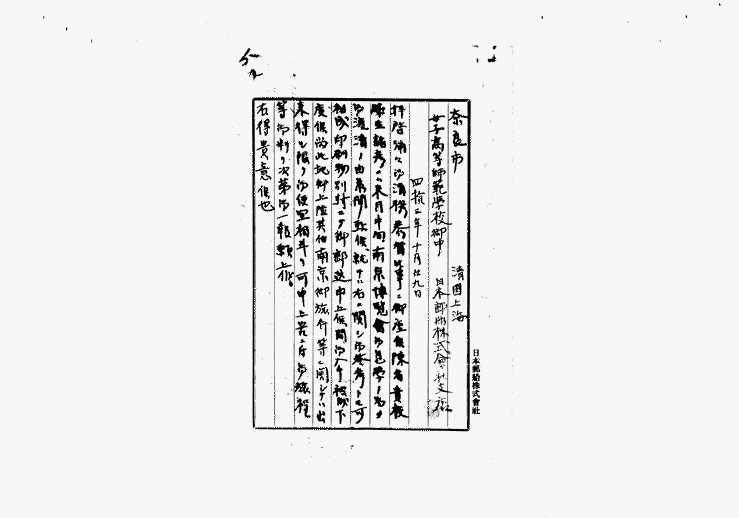 奈良市
女子高等師範學校御中
清国上海
日本郵船株式會社支店
四拾三年十月廿九日
拝啓 益々御清栄奉賀候事ニ御座候陳者貴校
職生諸彦ニハ来月中旬南京博覧會御見學ノ為メ
御渡清ノ由兼聞致候就テハ右ニ関シ御参考トモ可
相成印刷物別封ニテ御郵送申上候間御入手被成下
度候尚此地御上陸其他南京御旅行等ニ関シテハ出
来得ル限リ御便宜相斗リ可申上
等御料リ次第御一報願上候
右得貴意候也
日本郵船株式會社